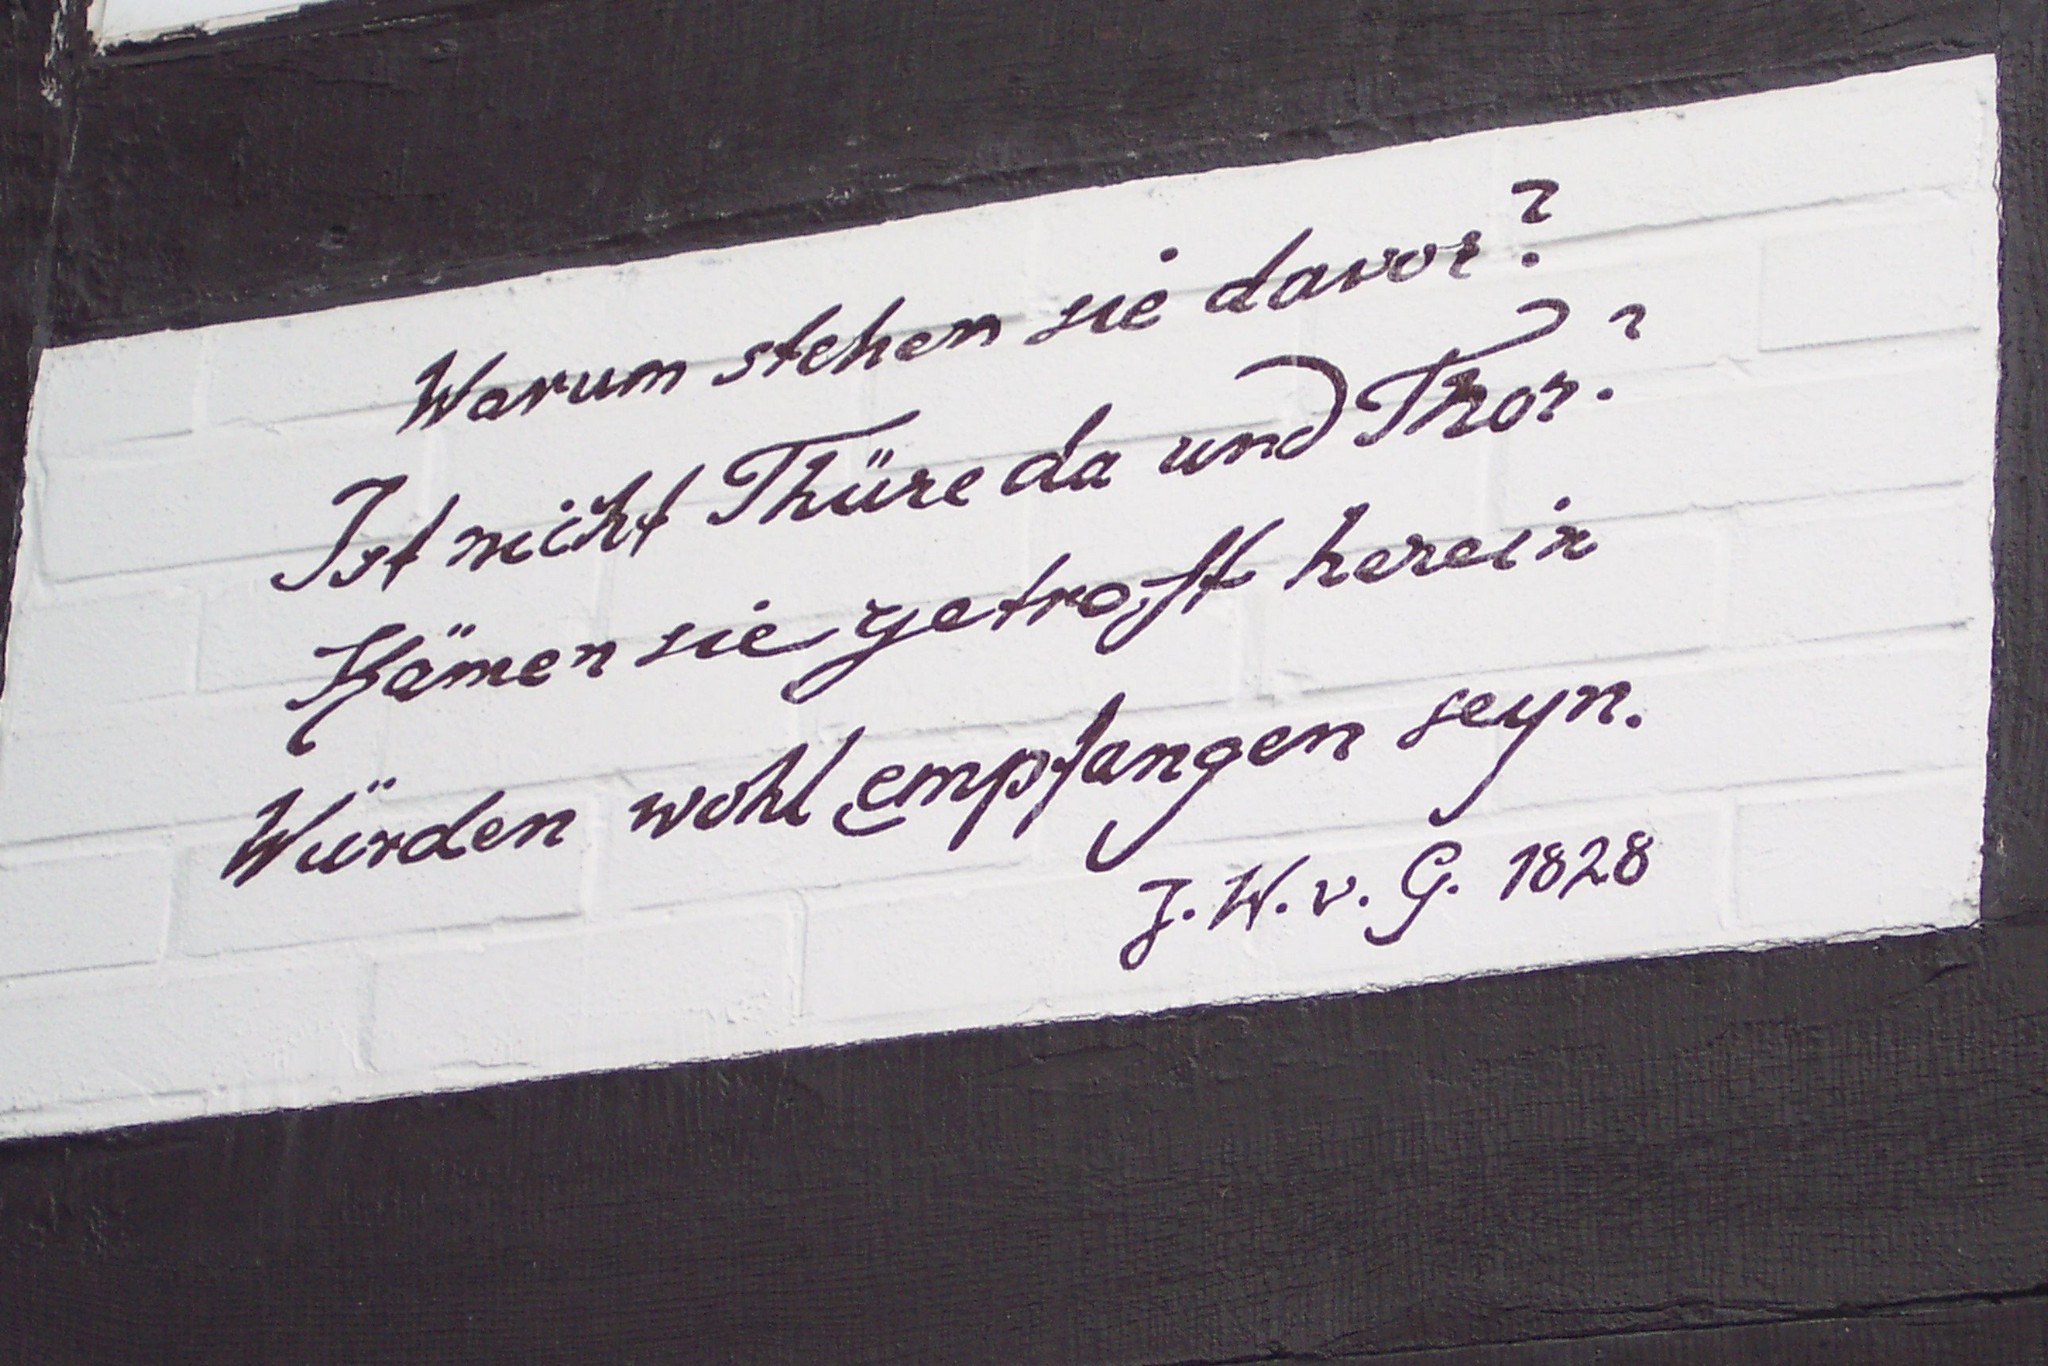 Warum stehen sie davor?
Ist nicht Thüre da und Thor?
Kämen sie getrost herein
Würden wohl empfangen seyn.
J. W. v. G. 1828